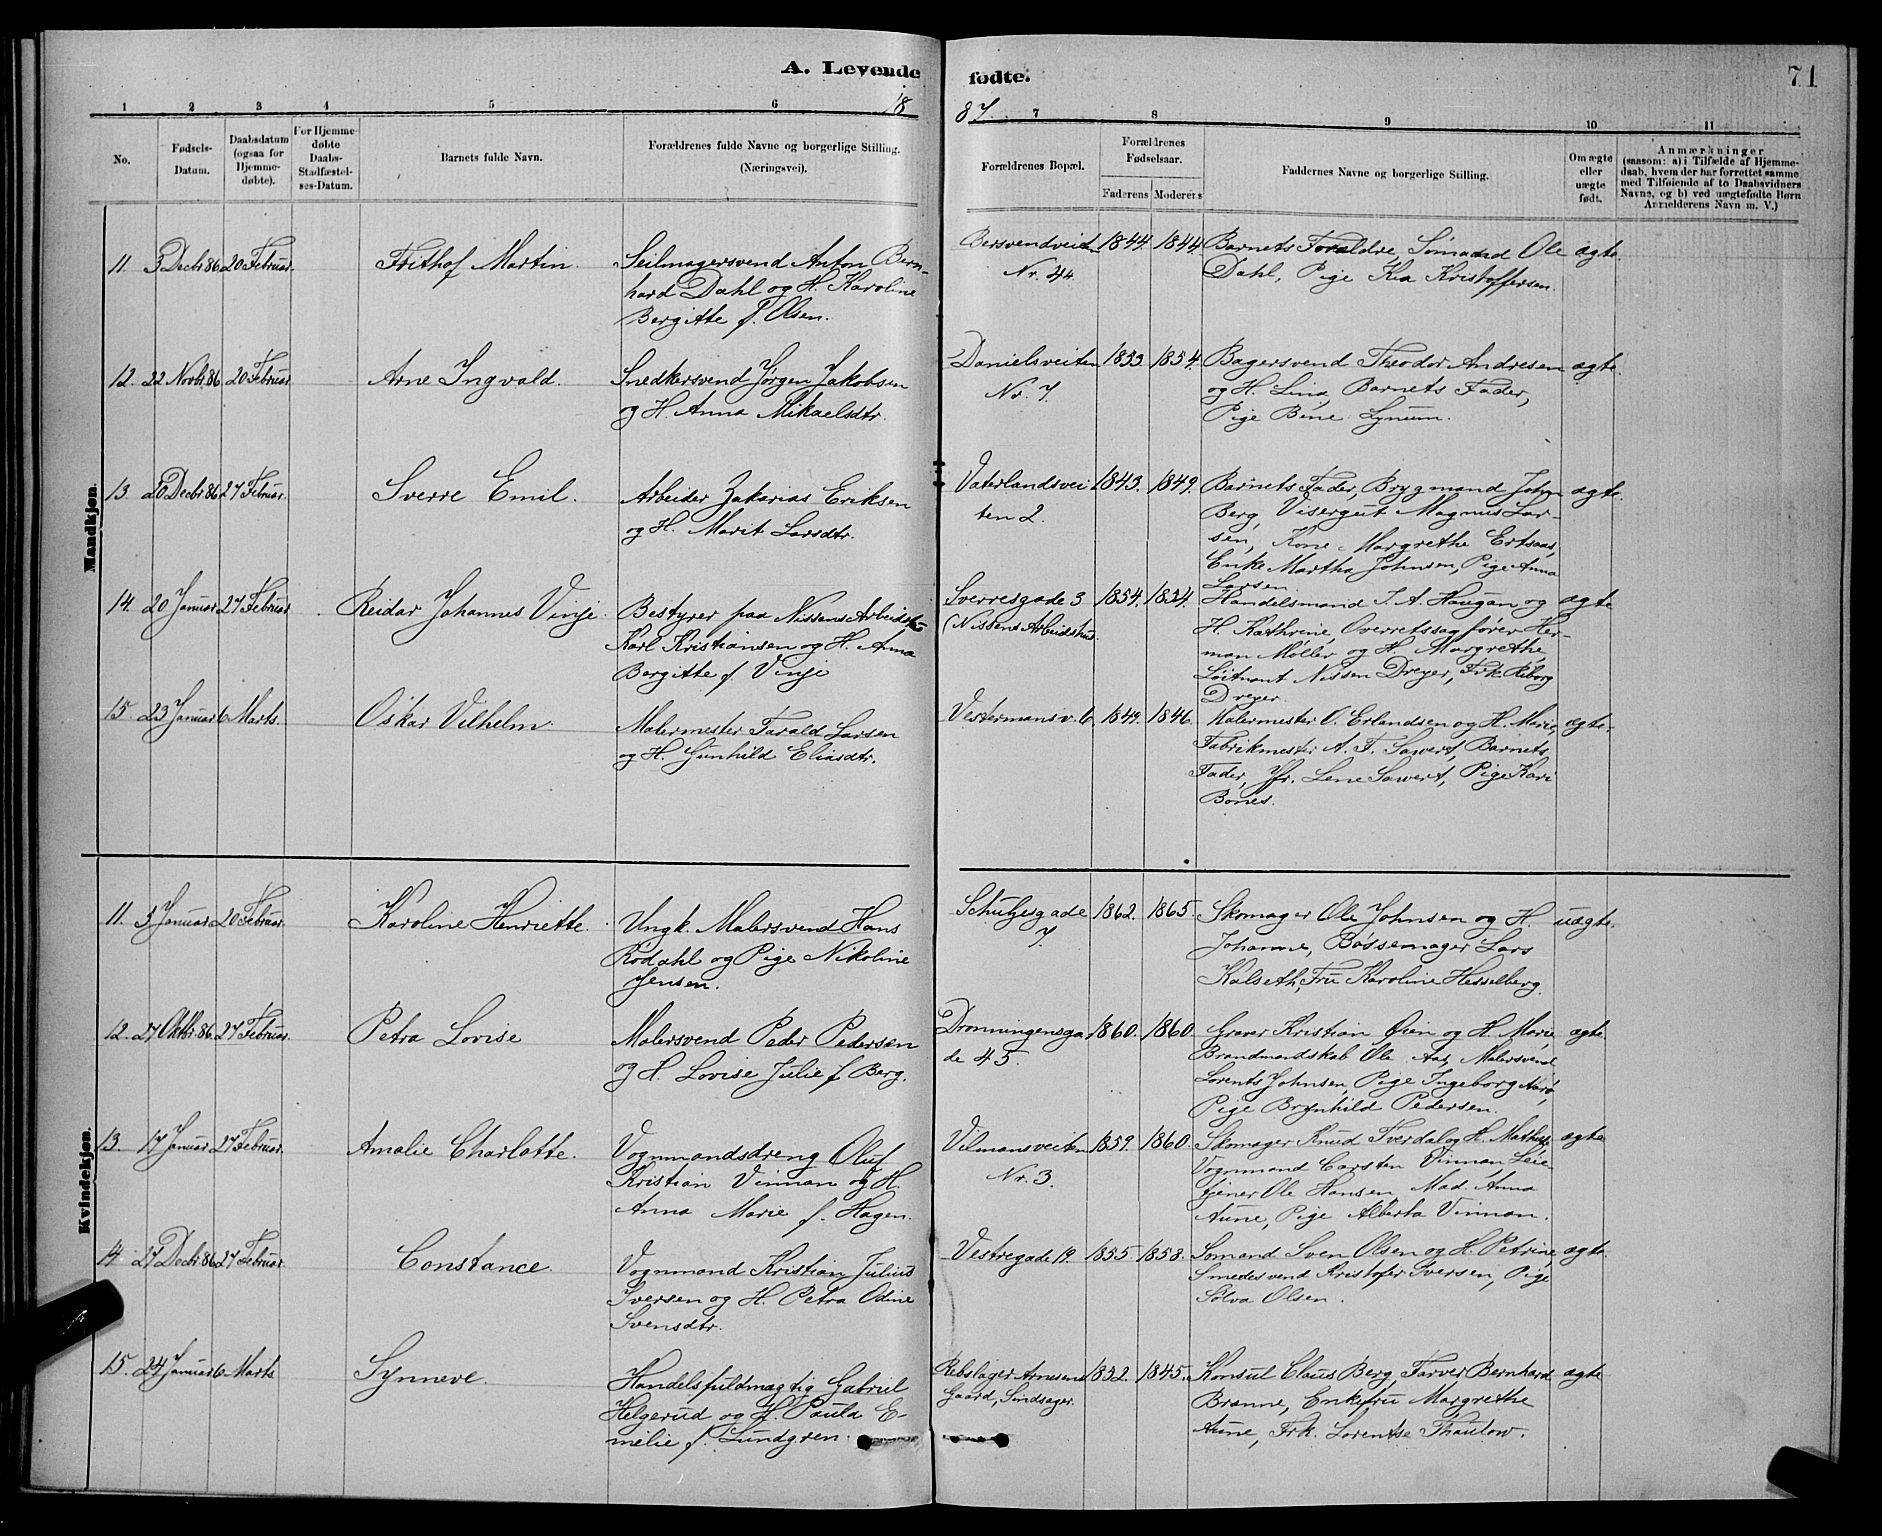 A. Levende fødte.
71
18 87.
1 2 3 4 5 6 7 8 9 10 11
No.
Fødsels-
Datum.
Daabsdatum
(ogsaa for
Hjemme-
døbte).
For Hjemme-
døbte
Daabs-
Stadfæstel-
ses-Datum.
Barnets fulde Navn.
Forældrenes fulde Navne og borgerlige Stilling.
(Næringsvei).
Forældrenes Bopæl.
Forældrenes
Fødselsaar.
Faderens Moderens
Faddernes Navne og borgerlige Stilling.
Om ægte
eller
uægte
født.
Anmærkninger
(saasom: a) i Tilfælde af Hjemme-
daab, hvem der har forrettet samme
med Tilføiende af to Daabsvidners
Navne, og b) ved uægtefødte Børn
Anmelderens Navn m. V.)
Mandkjøn.
11. 3 Decbr 86 20 Februar. Frithof Martin. Seilmagersvend Anton Bern-
hard Dahl og H. Karoline
Bergitte f. Olsen.
Bersvendveit
Nr. 44
1844. 1844. Barnets Forældre, Sømand Ole ægte.
Dahl, Pige Kia Kristoffersen.
12. 22 Novbr. 86 20 Februar Arne Ingvald. Snedkersvend Jørgen Jakobsen
og H. Anna Mikaelsdtr.
Danielsveiten
Nr. 7.
1853. 1854. Bagersvend Theodor Andresen ægte.
og H. Lina, Barnets Fader,
Pige Bine Lyneum.
13. 20 Decbr 86 27 Februar. Sverre Emil. Arbeider Zakarias Eriksen
og H. Marit Larsdtr.
Vaterlandsvei
ten 2.
1843. 1849. Barnets Fader, Brygmand John ægte.
Berg, Visergut Magnus Lar-
sen, Kone Margrethe Ertsaas,
Enke Martha Johnsen, Pige Anna
Larsen
14. 20 Januar 27 Februar Reidar Johannes Vinje. Bestyrer paa Nissens Arbeidshus
Karl Kristiansen og H. Anna
Bergitte f. Vinje
Sverresgade 3
(Nissens Arbeidshus
1854. 1854. Handelsmand I. A. Haugan og ægte
H. Kathrine, Overretssagfører Her-
man Møller og H. Margrethe,
Løitnant Nissen Dreyer, Frk. Riborg
Dreyer.
15. 23 Januar 6 Marts. Oskar Vilhelm Malermester Tarald Larsen
og H. Gunhild Eliasdtr.
Vestermansv. 6 1846. Malermester O. Erlandsen og H. Marie, ægte.
Fabrikmester A. F. Sawert, Barnets
Fader, Jfr. Lene Sawert, Pige Kari
Bones.
Kvindekjøn.
11. 3 Januar 20 Februar. Karoline Henriette. Ungk. Malersvend Hans
Rødahl og Pige Nikoline
Jensen.
Schultzesgade
7.
1862. 1865. Skomager Ole Johnsen og H. uægte.
Johanne, Bøssemager Lars
Kalseth, Fru Karoline Hesselberg.
12. 27 Oktbr. 86 27 Februar. Petra Lovise Malersvend Peder Pedersen
og H. Lovise Julie f Berg.
Dronningensga
de 45.
1860. 1860 Graver Kristian Øien og H. Marie ægte.
Brandmandskab Ole Aas, Malersvend
Lorents Johnsen, Pige Ingeborg Aarø,
Pige Brynhild Pedersen.
13. 17 Januar 27 Februar. Amalie Charlotte. Vognmandsdreng Oluf
Kristian Vinnan og H.
Anna Marie f. Hagen.
Vilmansveiten
Nr. 3.
1859. 1860. Skomager Knud Tverdal og H. Mathilde ægte
Vognmand Carsten Vinnan Leie
tjener Ole Hansen, Mad. Anna
Aune, Pige Alberta Vinnan.
14. 27 Decbr 86 27 Februar Constance. Vognmand Kristian Julius
Iversen og H. Petra Odine
Svensdtr.
Vestregade 19. 1855. 1858. Sømand Sven Olsen og H. Petrine, ægte
Smedesvend Kristofer Iversen, Pige
Sølva Olsen.
15. 24 Januar 6 Marts Synneve. Handelsfuldmægtig Gabriel
Helgerud og H. Paula E-
milie f. Lundgren.
Rebslager Arnesens
Gaard, Sindsager.
1832. 1845. Konsul Claus Berg, Farver Bernhard ægte
Brænne, Enkefru Margrethe
Aune, Frk. Lorentse Thaulow.